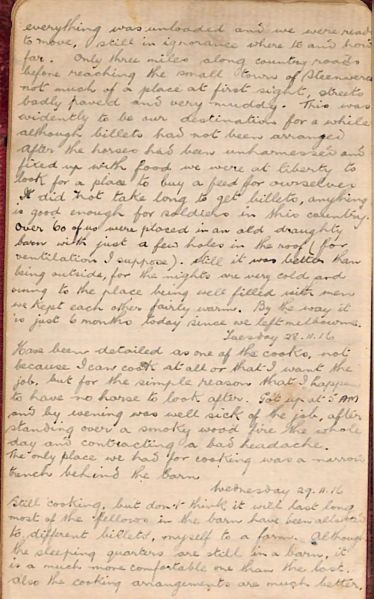 everything was unloaded and we were ready
to move, still in ignorance where to and how
far. Only three miles along country roads
before reaching the small town of Steenwerck
not much of a place at first sight, streets
badly paved and very muddy. This was
evidently to be our destination for a while
although billets had not been arranged
After the horses had been unharnessed and
fixed up with food we were at liberty to
look for a place to buy a feed for ourselves
It did not take long to get billets, anything
is good enough for soldiers in this country.
Over 60 of us were placed in an old draughty
barn with just a few holes in the roof (for
ventilation I suppose). Still it was better than
being outside, for the nights are very cold and
owing to the place being well filled with men
we kept each other fairly warm. By the way it
is just 6 months today since we left Melbourne.
Tuesday 28.11.16
Have been detailed as one of the cooks, not
because I can cook at all or that I want the
job, but for the simple reason that I happen
to have no horse to look after. Got up at 5 AM
and by evening was well sick of the job, after
standing over a smokey wood fire the whole
day and contracting a bad headache.
The only place we had for cooking was a narrow
trench behind the barn
Wednesday 29.11.16
Still cooking, but don't think it will last long
most of the fellows in the barn have been allotted
to different billets, myself to a farm. Although
the sleeping quarters are still in a barn, it
is a much more comfortable one than the last.
also the cooking arrangements are much better.